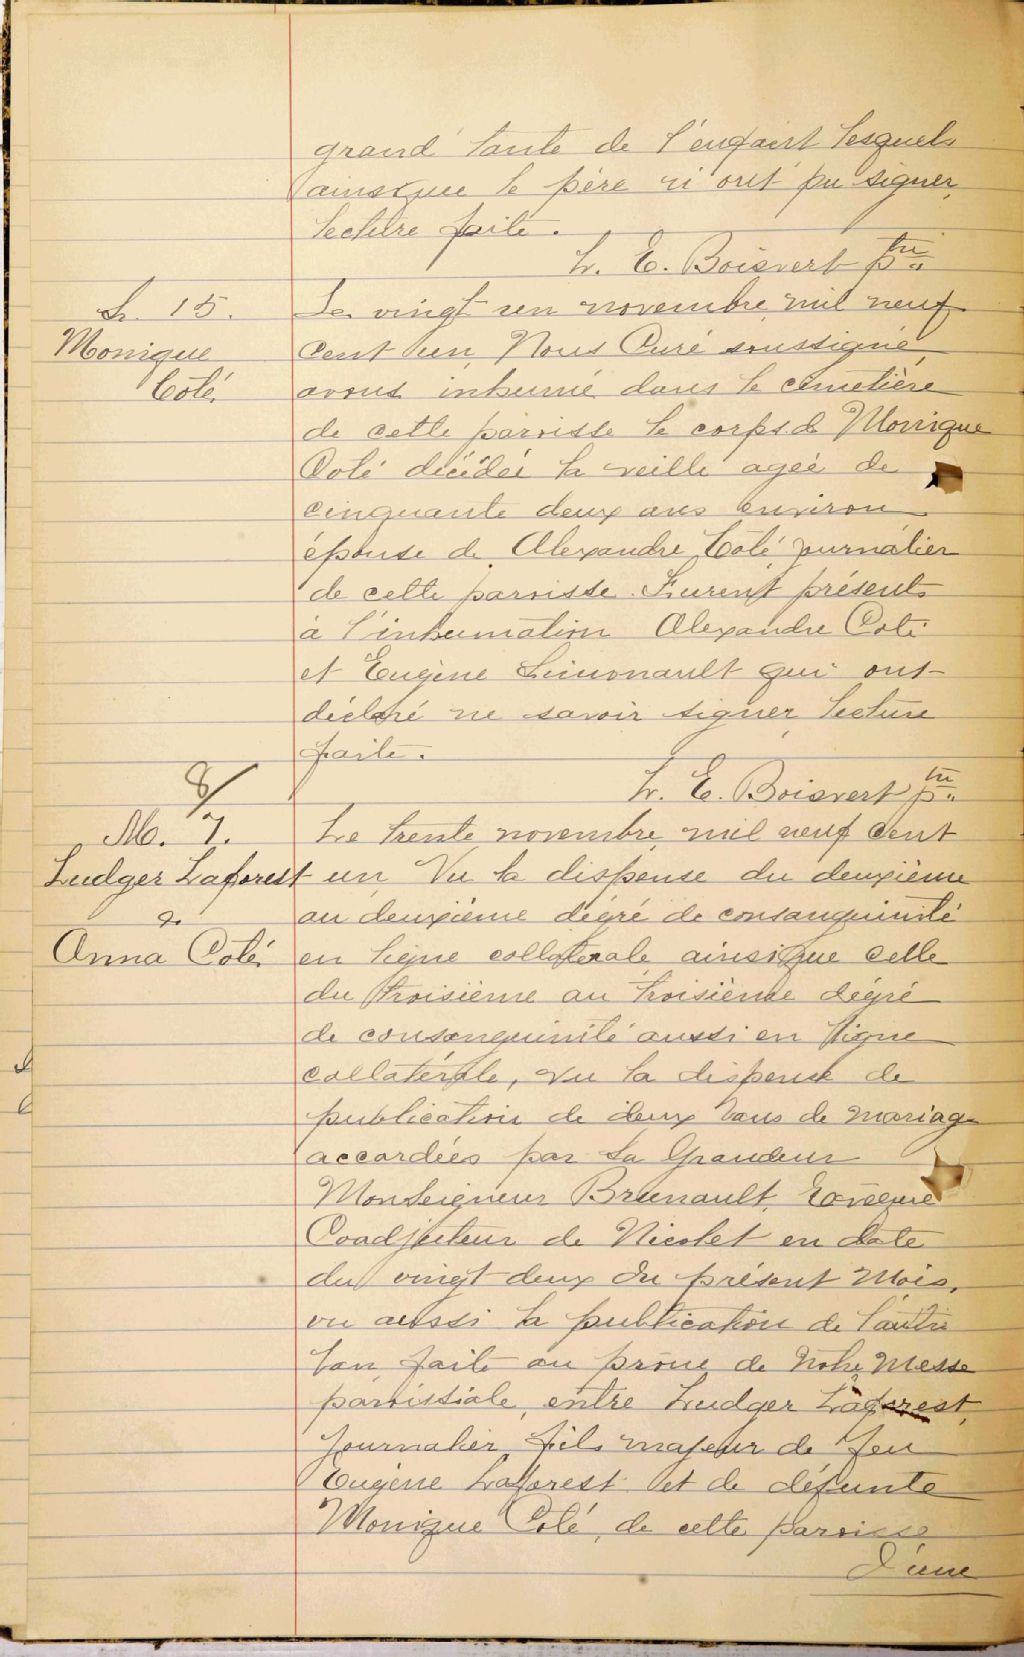 grand' tante de l'enfant lesquels
ainsi que le père n'ont pu signer,
lecture faite.
L. E. Boisvert ptre
S. 15.
Monique
Coté
Le vingt un novembre mil neuf
cent un, Nous Curé soussigné,
avons inhumé dans le cimetière
de cette paroisse le corps de Monique
Coté décédée la veille agée de
cinquante deux ans environ
épouse de Alexandre Coté journalier
de cette paroisse. Furent présents
à l'inhumation Alexandre Coté
et Eugène Simonault qui ont
déclaré ne savoir signer, lecture
faite.
L. E. Boisvert ptre
8/
M. 7.
Ludger Laforest
&
Anna Coté
Le trente novembre, mil neuf cent
un, Vu la dispense du deuxième
au deuxième dégré de consanguinité
en ligne collatérale, ainsi que celle
du troisième au troisième dégré
de consanguinité aussi en ligne
collatérale, vu la dispense de
publication de deux bans de mariage
accordées par Sa Grandeur
Monseigneur Brunault, Evêque
Coadjuteur de Nicolet en date
du vingt deux du présent mois,
vu aussi la publication de l'autre
ban, faite au prône de notre Messe
paroissiale, entre Ludger Laforest,
journalier, fils majeur de feu
Eugène Laforest et de défunte
Monique Coté, de cette paroisse
d'une